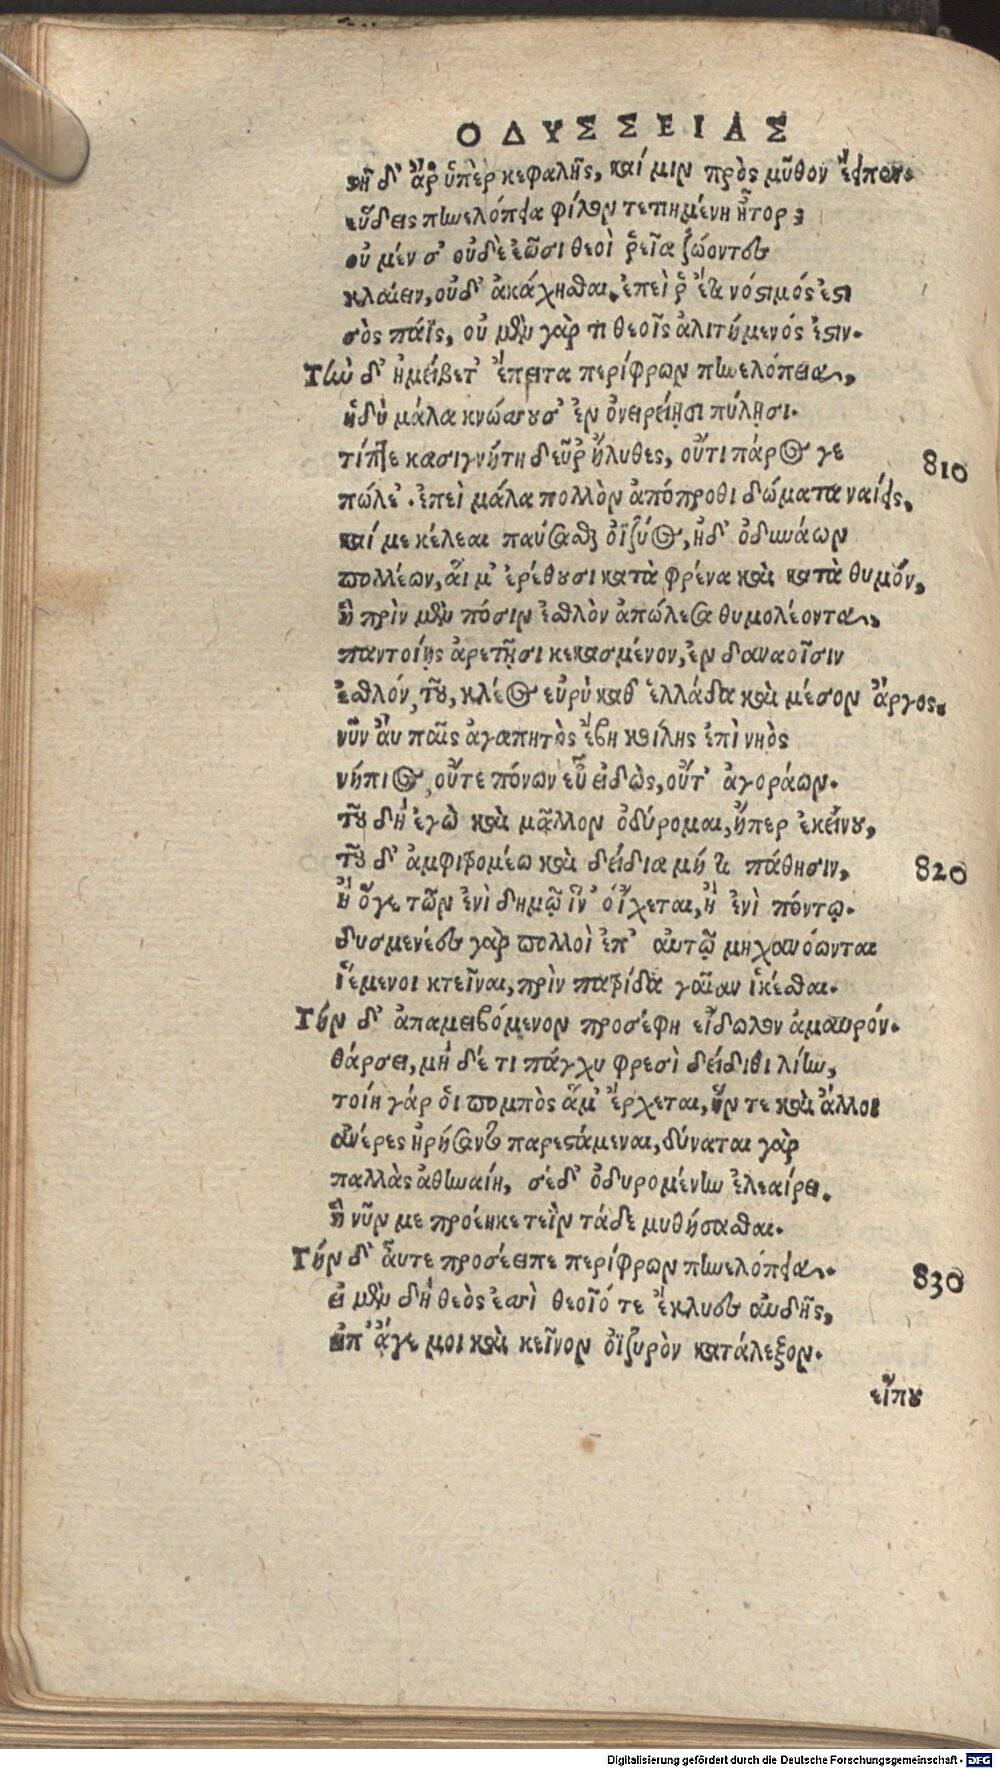 ΟΔΥΣΣΕΙΑΣ
στῆ δ' ἄρ ὑπὲρ κεφαλῆς, καί μιν πρὸς μῦθον ἔειπεν.
εὕδεις πηνελόπεια φίλον τετιημένη ἦτορ;
οὐ μέν σ' οὐδὲ ἐῶσι θεοὶ ῥεῖα ζώοντες
κλαίειν, οὐδ' ἀκάχησθαι. ἐπεὶ ῥ' ἔτι νόστιμός ἐστι
σὸς πάϊς, οὐ μὲν γάρ τι θεοῖς ἀλιτήμενός ἐστιν.
Τὴν δ' ἠμείβετ' ἔπειτα περίφρων πηνελόπεια,
ἡδὺ μάλα κνώσσουσ' ἐν ὀνειρείῃσι πύλῃσι.
τίπτε κασιγνήτη δεῦρ' ἤλυθες, οὔτι πάρος γε
810
πώλε'. ἐπεὶ μάλα πολλὸν ἀπόπροθι δώματα ναίεις,
καί με κέλεαι παύσασθαι ὀϊζύος, ἠδ' ὀδυνάων
πολλέων, αἵ μ' ἐρέθουσι κατὰ φρένα καὶ κατὰ θυμόν,
ἣ πρὶν μὲν πόσιν ἐσθλὸν ἀπώλεσα θυμολέοντα,
παντοίῃς ἀρετῇσι κεκασμένον, ἐν δαναοῖσιν
ἐσθλόν, τοῦ, κλέος εὐρὺ καθ' ἑλλάδα καὶ μέσον ἄργος.
νῦν αὖ παῖς ἀγαπητὸς ἔβη κοίλης ἐπὶ νηὸς
νήπιος, οὔτε πόνων εὖ εἰδὼς, οὔτ' ἀγοράων.
τοῦ δὴ ἐγὼ καὶ μᾶλλον ὀδύρομαι, ἤπερ ἐκείνου,
τοῦ δ' ἀμφιτρομέω καὶ δείδια μή τι πάθησιν,
820
ἢ ὅγε τῶν ἐνὶ δημῷ ἵν' οἴχεται, ἢ ἐνὶ πόντῳ.
δυσμενέες γὰρ πολλοὶ ἐπ' αὐτῷ μηχανόωνται
ἱέμενοι κτεῖναι, πρὶν πατρίδα γαῖαν ἱκέσθαι.
Τήν δ' ἀπαμειβόμενον προσέφη εἴδωλον ἀμαυρόν.
θάρσει, μὴ δέ τι πάγχυ φρεσὶ δείδιθι λίην,
τοίη γάρ οἱ πομπὸς ἅμ' ἔρχεται, ἥν τε καὶ ἄλλοι
ἀνέρες ἠρήσαντο παρεστάμεναι, δύναται γὰρ
παλλὰς ἀθηναίη, σέ δ' ὀδυρομένην ἐλεαίρει.
ἣ νῦν με προέηκε τεῒν τάδε μυθήσασθαι.
Τήν δ' αὖτε προσέειπε περίφρων πηνελόπεια.
830
εἰ μὲν δὴ θεὸς ἐσσὶ θεοῖό τε ἔκλυες αὐδῆς,
εἰπ' ἄγε μοι καὶ κεῖνον ὀϊζυρὸν κατάλεξον.
εἴπου
Digitalisierung gefördert durch die Deutsche Forschungsgemeinschaft - DFG